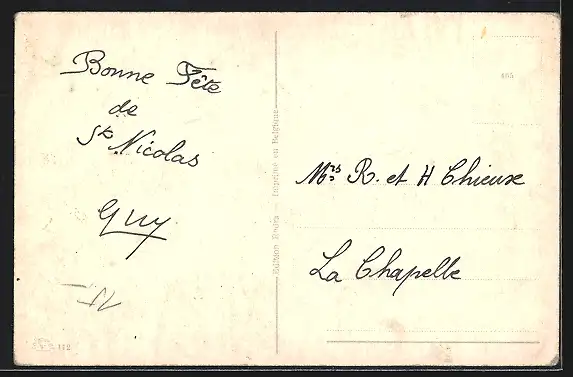 Bonne Fête
de
St Nicolas
Guy
Mrs R. et H Chieux
La Chapelle
Imprimé en Belgique
Edition